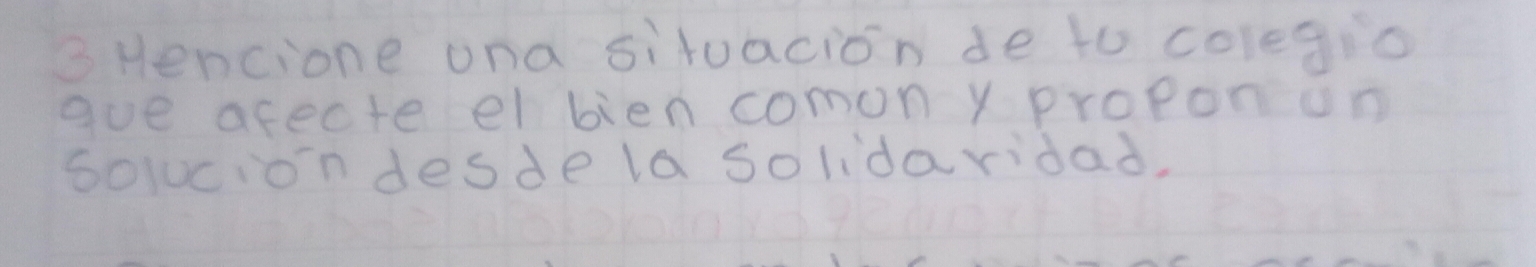 3 Mencione una situación de tu colegio
que afecte el bien comun y propon un
solución desde la solidaridad.